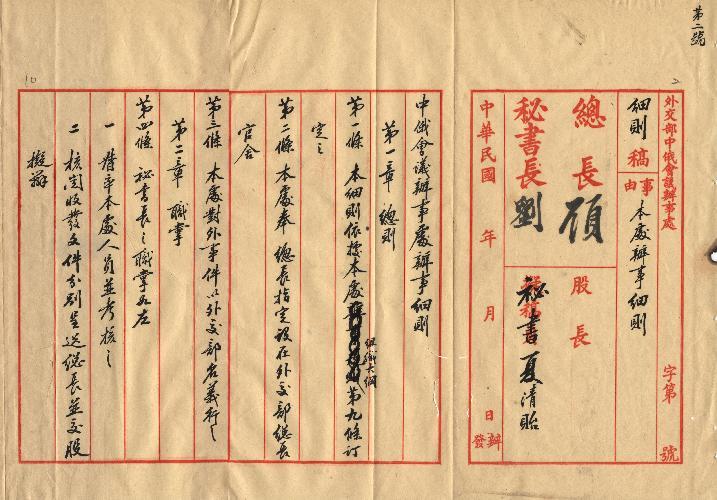 第二號
外交部中俄會議辦事處
細則稿
事由
本處辦事細則
字第 號
總長 顧
股長
秘書長 劉
秘書 夏清貽
中華民國 年 月 日
辦
發
中俄會議辦事處辦事細則
第一章 總則
第一條 本細則依據本處組織大綱第九條訂
定之
第二條 本處奉 總長指定設在外交部總長
官舍
第三條 本處對外事件以外交部名義行之
第二章 職掌
第四條 秘書長之職掌如左
一 督率本處人員並考核之
二 核閱收發文件分別呈送總長並交股
擬辦